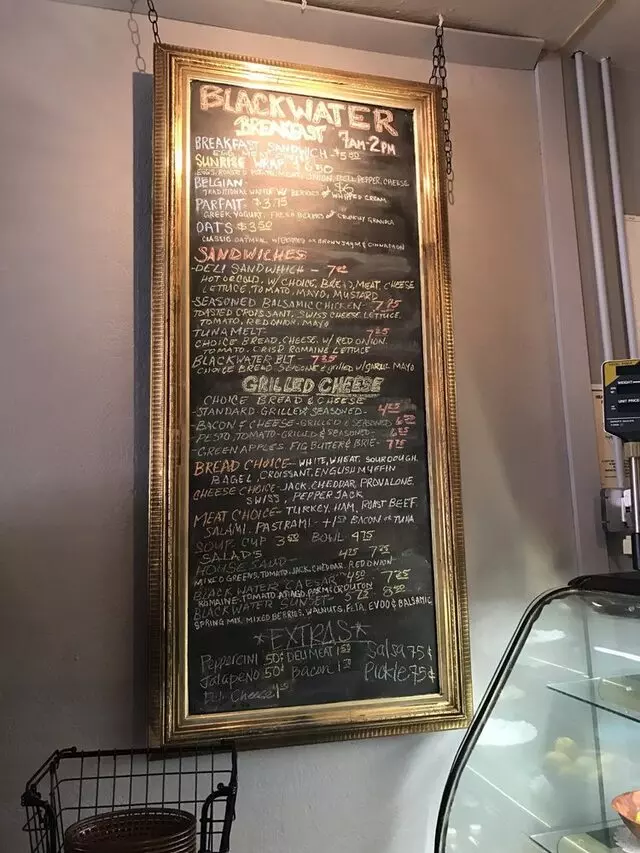 BLACKWATER
BREAKFAST 7AM-2PM
BREAKFAST SANDWICH $5.50
EGG, MEAT
SUNRISE WRAP $6.50
EGGS, ROASTED POTATO, MEAT, ONION, BELL PEPPER, CHEESE
BELGIAN $6
TRADITIONAL WAFFLE W/ BERRIES & WHIPPED CREAM
PARFAIT $3.75
GREEK YOGURT, FRESH BERRIES & CRUNCHY GRANOLA
OATS $3.50
CLASSIC OATMEAL W/ BERRIES OR BROWN SUGAR & CINNAMON
SANDWICHES
-DELI SANDWHICH -
HOT OR COLD, W/ CHOICE, BREAD, MEAT, CHEESE
LETTUCE, TOMATO, MAYO, MUSTARD
-SEASONED BALSAMIC CHICKEN- 7.75
TOASTED CROISSANT, SWISS CHEESE, LETTUCE,
TOMATO, RED ONION, MAYO
TUNA MELT-
CHOICE BREAD, CHEESE, W/ RED ONION,
TOMATO, CRISP ROMAINE LETTUCE
BLACKWATER BLT -
CHOICE BREAD SEASONED & GRILLED W/ GARLIC MAYO
GRILLED CHEESE
CHOICE BREAD & CHEESE
-STANDARD-GRILLED & SEASONED-
BACON & CHEESE-GRILLED & SEASONED
PESTO, TOMATO-GRILLED & SEASONED-
-GREEN APPLES, FIG BUTTER & BRIE-
BREAD CHOICE- WHITE, WHEAT, SOURDOUGH,
BAGEL, CROISSANT, ENGLISH MUFFIN
CHEESE CHOICE-JACK, CHEDDAR, PROVALONE,
SWISS, PEPPER JACK
MEAT CHOICE- TURKEY, HAM, ROAST BEEF
SALAMI, PASTRAMI- BACON OR TUNA
SOUP CUP 3.50 BOWL 4.75
SALADS
HOUSE SALAD- 4.25 7.25
MIXED GREENS, TOMATO, JACK, CHEDDAR, RED ONION
BLACK WATER CAESAR 4.50 7.25
ROMAINE, TOMATO, PARM, CROUTON
BLACKWATER SUNSET
SPRING MIX, MIXED BERRIES, WALNUTS, FETA, EVOO & BALSAMIC
*EXTRAS*
Peppercini 50¢ DELI MEAT Salsa 75¢
Jalapeno 50¢ Bacon Pickle 75¢
Cheese
UNIT PRICE